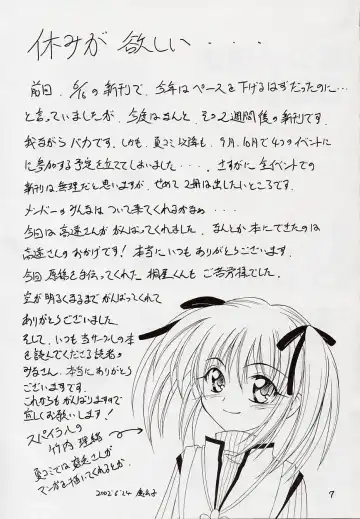 休みが 欲しい・・・・
前回、6/16の新刊で、今年はペースを下げるはずだったのに…
と言っていましたが、今度はなんと、その2週間後の新刊です。
我ながらバカです。しかも、夏コミ以降も、9月、10月で4つのイベント
に参加する予定を立ててしまいました・・・、さすがに全イベントでの
新刊は無理だと思いますが、せめて2冊は出したいところです。
メンバーのみんなはついて来てくれるかなぁ・・・
今回は高遠さんががんばってくれました、なんとか本にできたのは
高遠さんのおかげです！本当にいつもありがとうございます。
今回原稿を手伝ってくれた 桐星くんもご苦労様でした。
空が明るくなるまでがんばってくれて
ありがとうございました。
そして、いつも当サークルの本
を読んでくださる読者の
みなさん、本当にありがとう
ございますです。
これからもがんばりますので
宜しくお願いします！
スパイラルの
竹内 理緒
夏コミでは 高遠さんが
マンガを描いてくれるとか。
2002 6/24
7